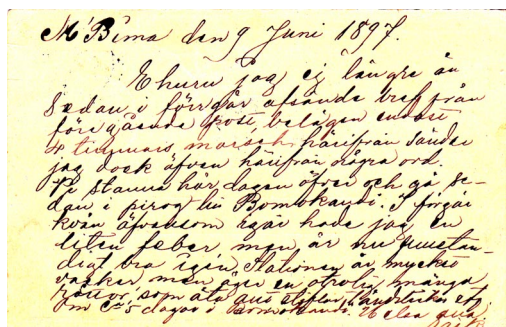 M'Bima den 9 Juni 1897.
Ehuru jag ej längre än
sedan i förrgår afsände bref från
föregående post, belägen endast
4 timmars marsch härifrån sänder
jag dock äfven härifrån några ord.
Vi stanna här dagen öfver och gå se-
dan i pirog till Bomokandi. I förgår
kväll äfvensom igår hade jag en
liten feber men är nu fullstän-
digt bra igen. Stationen är mycket
vacker, men äger en otrolig mängd
råttor, som äta upp stöflar, handdukar etc
Om 5 dagar i Bomokandi. Helsa